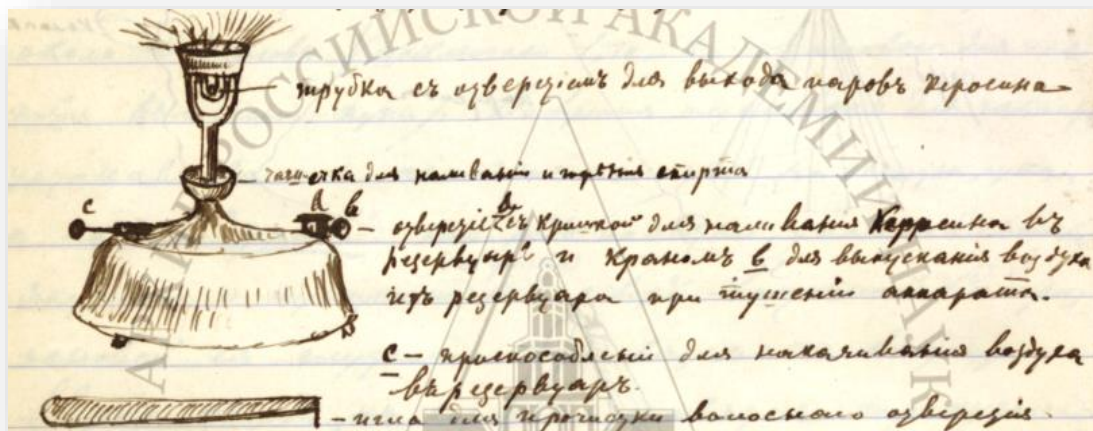 трубка съ отверстіемъ для выхода паровъ керосина
чашечка для наливанія и горѣнія спирта
c
A
b
отверстіе съ крышкой для наливанія керосина въ
резервуаръ и краномъ b для выпусканія воздуха
изъ резервуара при тушеніи аппарата.
c — приспособленіе для накачиванія воздуха
въ резервуаръ.
— игла для прочистки волоснаго отверстія.
РОССИЙСКОЙ АКАДЕМИИ НАУК